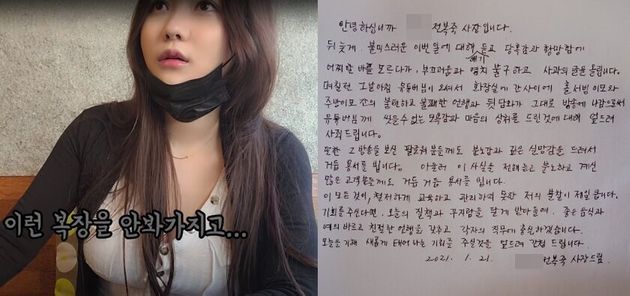 이런 복장을 안봐가지고...
안녕하십니까 전복죽 사장입니다.
뒤늦게 불미스러운 이번 일에 대해 듣고 당혹감과 황망함에
얘기
어찌할 바를 모르다가, 부끄러움과 염치 불구하고 사과의 글을 올립니다.
며칠전 그날아침 유튜버님이 오셔서 화장실에 간 사이에 홀서빙 이모와
주방이모 간의 불편하고 불쾌한 언행과 뒷담화가 그대로 방송에 나감으로서
유튜버님께 씻을 수 없는 모욕감과 마음의 상처를 드린것에 대해 엎드려
사죄 드립니다.
또한 그 방송을 보신 팔로워 분들께도 분노감과 깊은 실망감을 드려서
거듭 용서를 빕니다. 아울러 이 사실을 전해듣고 분노하고 계신
많은 고객분들께도 거듭 거듭 용서를 빕니다.
이 모든것이, 철저하게 교육하고 관리하지 못한 저의 불찰이 제일 큽니다.
기회를 주신다면, 오늘의 질책과 꾸지람을 달게 받아들여, 좋은 음식과
예의 바르고 친절한 언행을 갖추고 각자의 직무에 충실하겠습니다.
오늘을 계기로 새롭게 태어나는 기회를 주실것을 엎드려 간청드립니다.
2021. 1. 21. 전복죽 사장드림